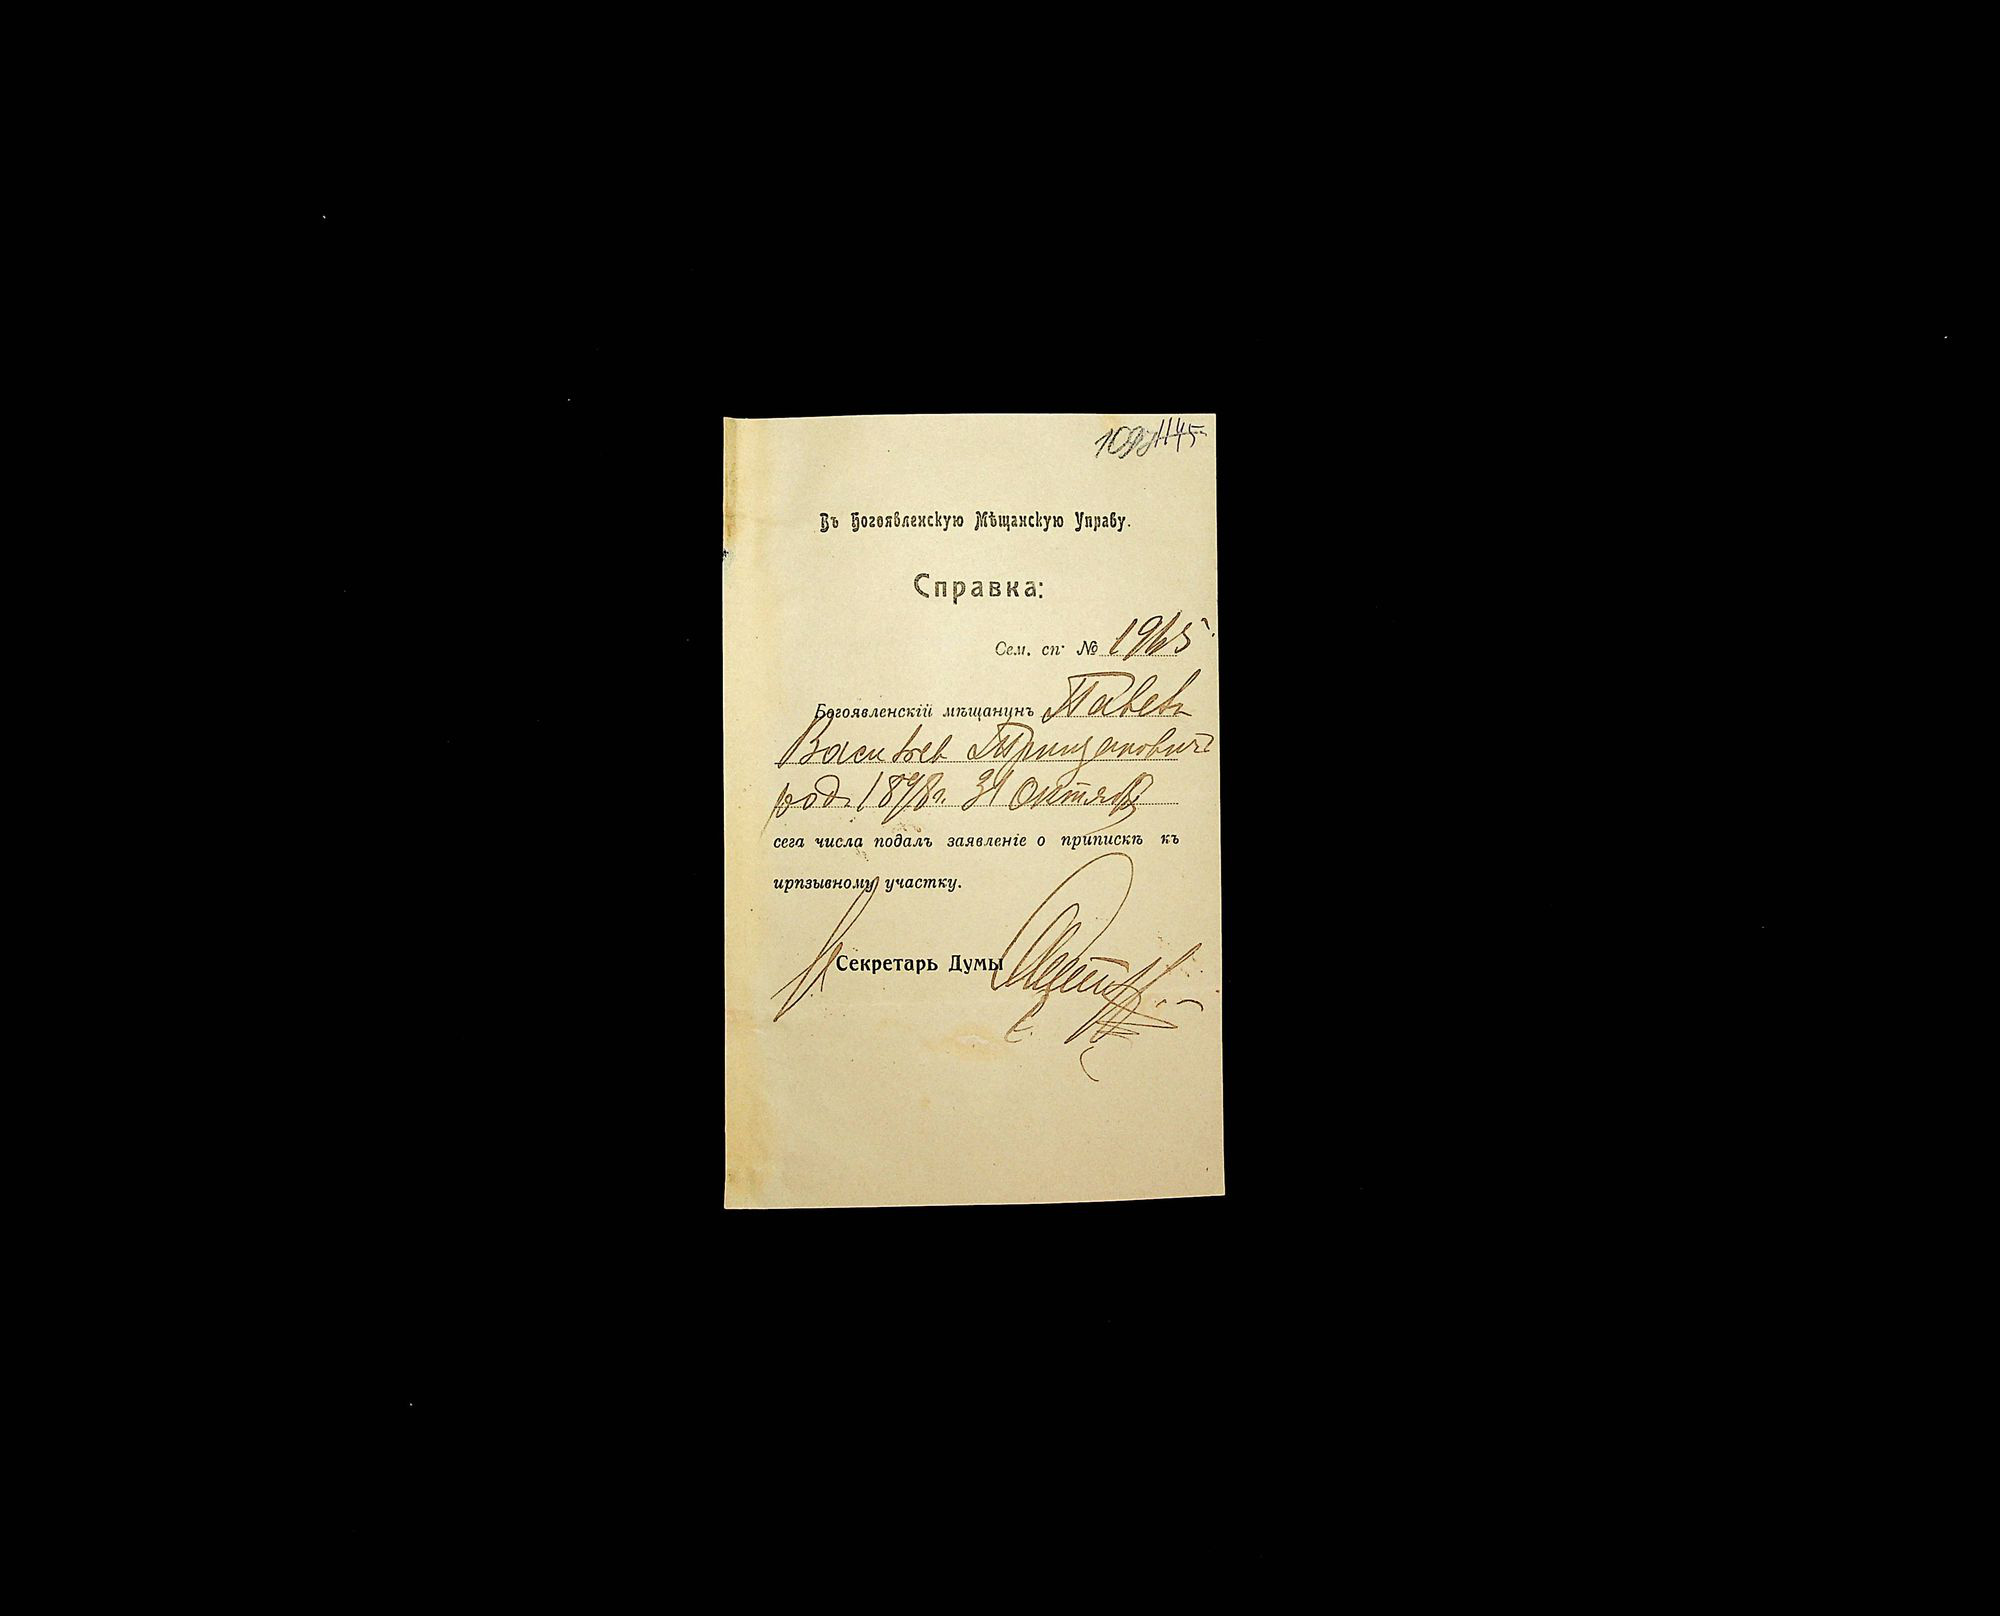 1145
Въ Богоявленскую Мѣщанскую Управу.
Справка:
Сем. сп· № 1965
Богоявленскій мѣщанунъ Павелъ
Васильев
род. 1898 г. 31 Октяб
сега числа подалъ заявленіе о припискѣ къ
ирпзывному участку.
Секретарь Думы